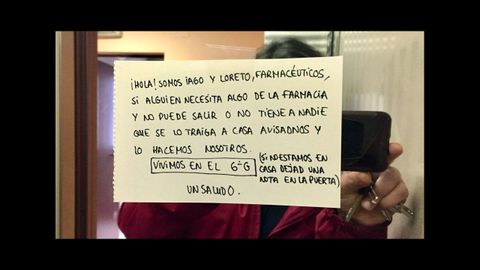 ¡HOLA! SOMOS IAGO Y LORETO, FARMACÉUTICOS,
SI ALGUIEN NECESITA ALGO DE LA FARMACIA
Y NO PUEDE SALIR O NO TIENE A NADIE
QUE SE LO TRAIGA A CASA AVISADNOS Y
LO HACEMOS NOSOTROS.
VIVIMOS EN EL 6º-G
(SI NO ESTAMOS EN
CASA DEJAD UNA
NOTA EN LA PUERTA)
UN SALUDO.